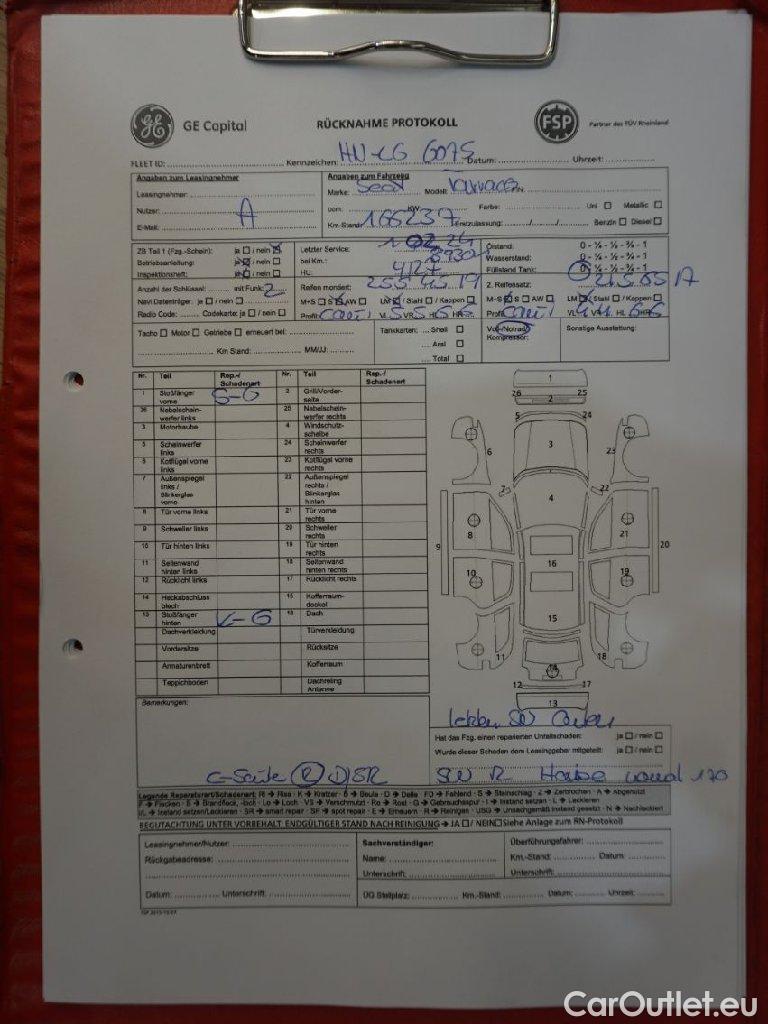 GE GE Capital RÜCKNAHME PROTOKOLL FSP Partner des TÜV Rheinland
FLEET ID: Kennzeichen: HU-CG 6075 Datum: Uhrzeit:
Angaben zum Leasingnehmer Angaben zum Fahrzeug
Leasingnehmer: Marke: Seat Modell:
Nutzer: A KW: Farbe: Uni ☐ Metallic ☐
E-Mail: Km-Stand: 166237 Erstzulassung: / / Benzin ☐ Diesel ☐
ZB Teil 1 (Fzg.-Schein): ja ☐ / nein ☒ Letzter Service: Ölstand: 0 - ¼ - ½ - ¾ - 1
Betriebsanleitung: ja / nein ☐ bei Km.: Wasserstand: 0 - ¼ - ½ - ¾ - 1
Inspektionsheft: ja / nein ☐ HU: Füllstand Tank: 0 - ¼ - ½ - ¾ - 1
Anzahl der Schlüssel: mit Funk: 2 Reifen montiert: 255 45 19 2. Reifensatz: 215 65 17
Navi Datenträger: ja ☐ / nein ☐ M+S ☐ S AW ☐ LM / Stahl ☐ / Kappen ☐ M+S S ☐ AW ☐ LM / Stahl ☐ / Kappen ☐
Radio Code: Codekarte: ja ☐ / nein ☐ Profil: Conti 5 5 6 6 VL VR HL HR Profil: Conti VL VR HL HR
Tacho ☐ Motor ☐ Getriebe ☐ erneuert bei: Tankkarten: ... Shell ☐ Voll-/Notrad Sonstige Ausstattung:
Km Stand: MM/JJ: ... Aral ☐ Kompressor:
... Total ☐
Nr. Teil Rep.-/ Schadenart Nr. Teil Rep.-/ Schadenart
1 Stoßfänger vorne S-G 2 Grill/Vorderseite
26 Nebelscheinwerfer links 25 Nebelscheinwerfer rechts
3 Motorhaube 4 Windschutzscheibe
5 Scheinwerfer links 24 Scheinwerfer rechts
6 Kotflügel vorne links 23 Kotflügel vorne rechts
7 Außenspiegel links / Blinkerglas vorne 22 Außenspiegel rechts / Blinkerglas hinten
8 Tür vorne links 21 Tür vorne rechts
9 Schweller links 20 Schweller rechts
10 Tür hinten links 19 Tür hinten rechts
11 Seitenwand hinter links 18 Seitenwand hinten rechts
12 Rücklicht links 17 Rücklicht rechts
14 Heckabschlussblech 15 Kofferraumdeckel
13 Stoßfänger hinten K-G 16 Dach
Dachverkleidung Türverkleidung
Vordersitze Rücksitze
Armaturenbrett Kofferraum
Teppichboden Dachreling Antenne
1
26 25
2
5 24
3
6 23
7 22
4
8 21
9 20
16
10 19
15
11 18
14
12 17
13
Bemerkungen:
Hat das Fzg. einen reparierten Unfallschaden: ja ☐ / nein ☐
Wurde dieser Schaden dem Leasinggeber mitgeteilt: ja ☐ / nein ☐
C-Säule R D/SR
Legende Reparaturart/Schadenart: Ri → Riss • K → Kratzer • B → Beule • D → Delle • FD → Fehlend • S → Steinschlag • Z → Zerbrochen • A → Abgenutzt
F → Flecken • B → Brandfleck, -loch • Lo → Loch • VS → Verschmutzt • Ro → Rost • G → Gebrauchsspur • I → Instand setzen • L → Lackieren
I/L → Instand setzen/Lackieren • SR → smart repair • SF → spot repair • E → Erneuern • R → Reinigen • USG → Unsachgemäß instand gesetzt • N → Nachlackiert
BEGUTACHTUNG UNTER VORBEHALT. ENDGÜLTIGER STAND NACH REINIGUNG → JA ☐ / NEIN ☐ Siehe Anlage zum RN-Protokoll
Leasingnehmer/Nutzer: Sachverständiger: Überführungsfahrer:
Rückgabeadresse: Name: Km.-Stand: Datum:
Unterschrift: Unterschrift:
Datum: Unterschrift: ÜG Stellplatz: Km.-Stand: Datum: Uhrzeit:
CarOutlet.eu